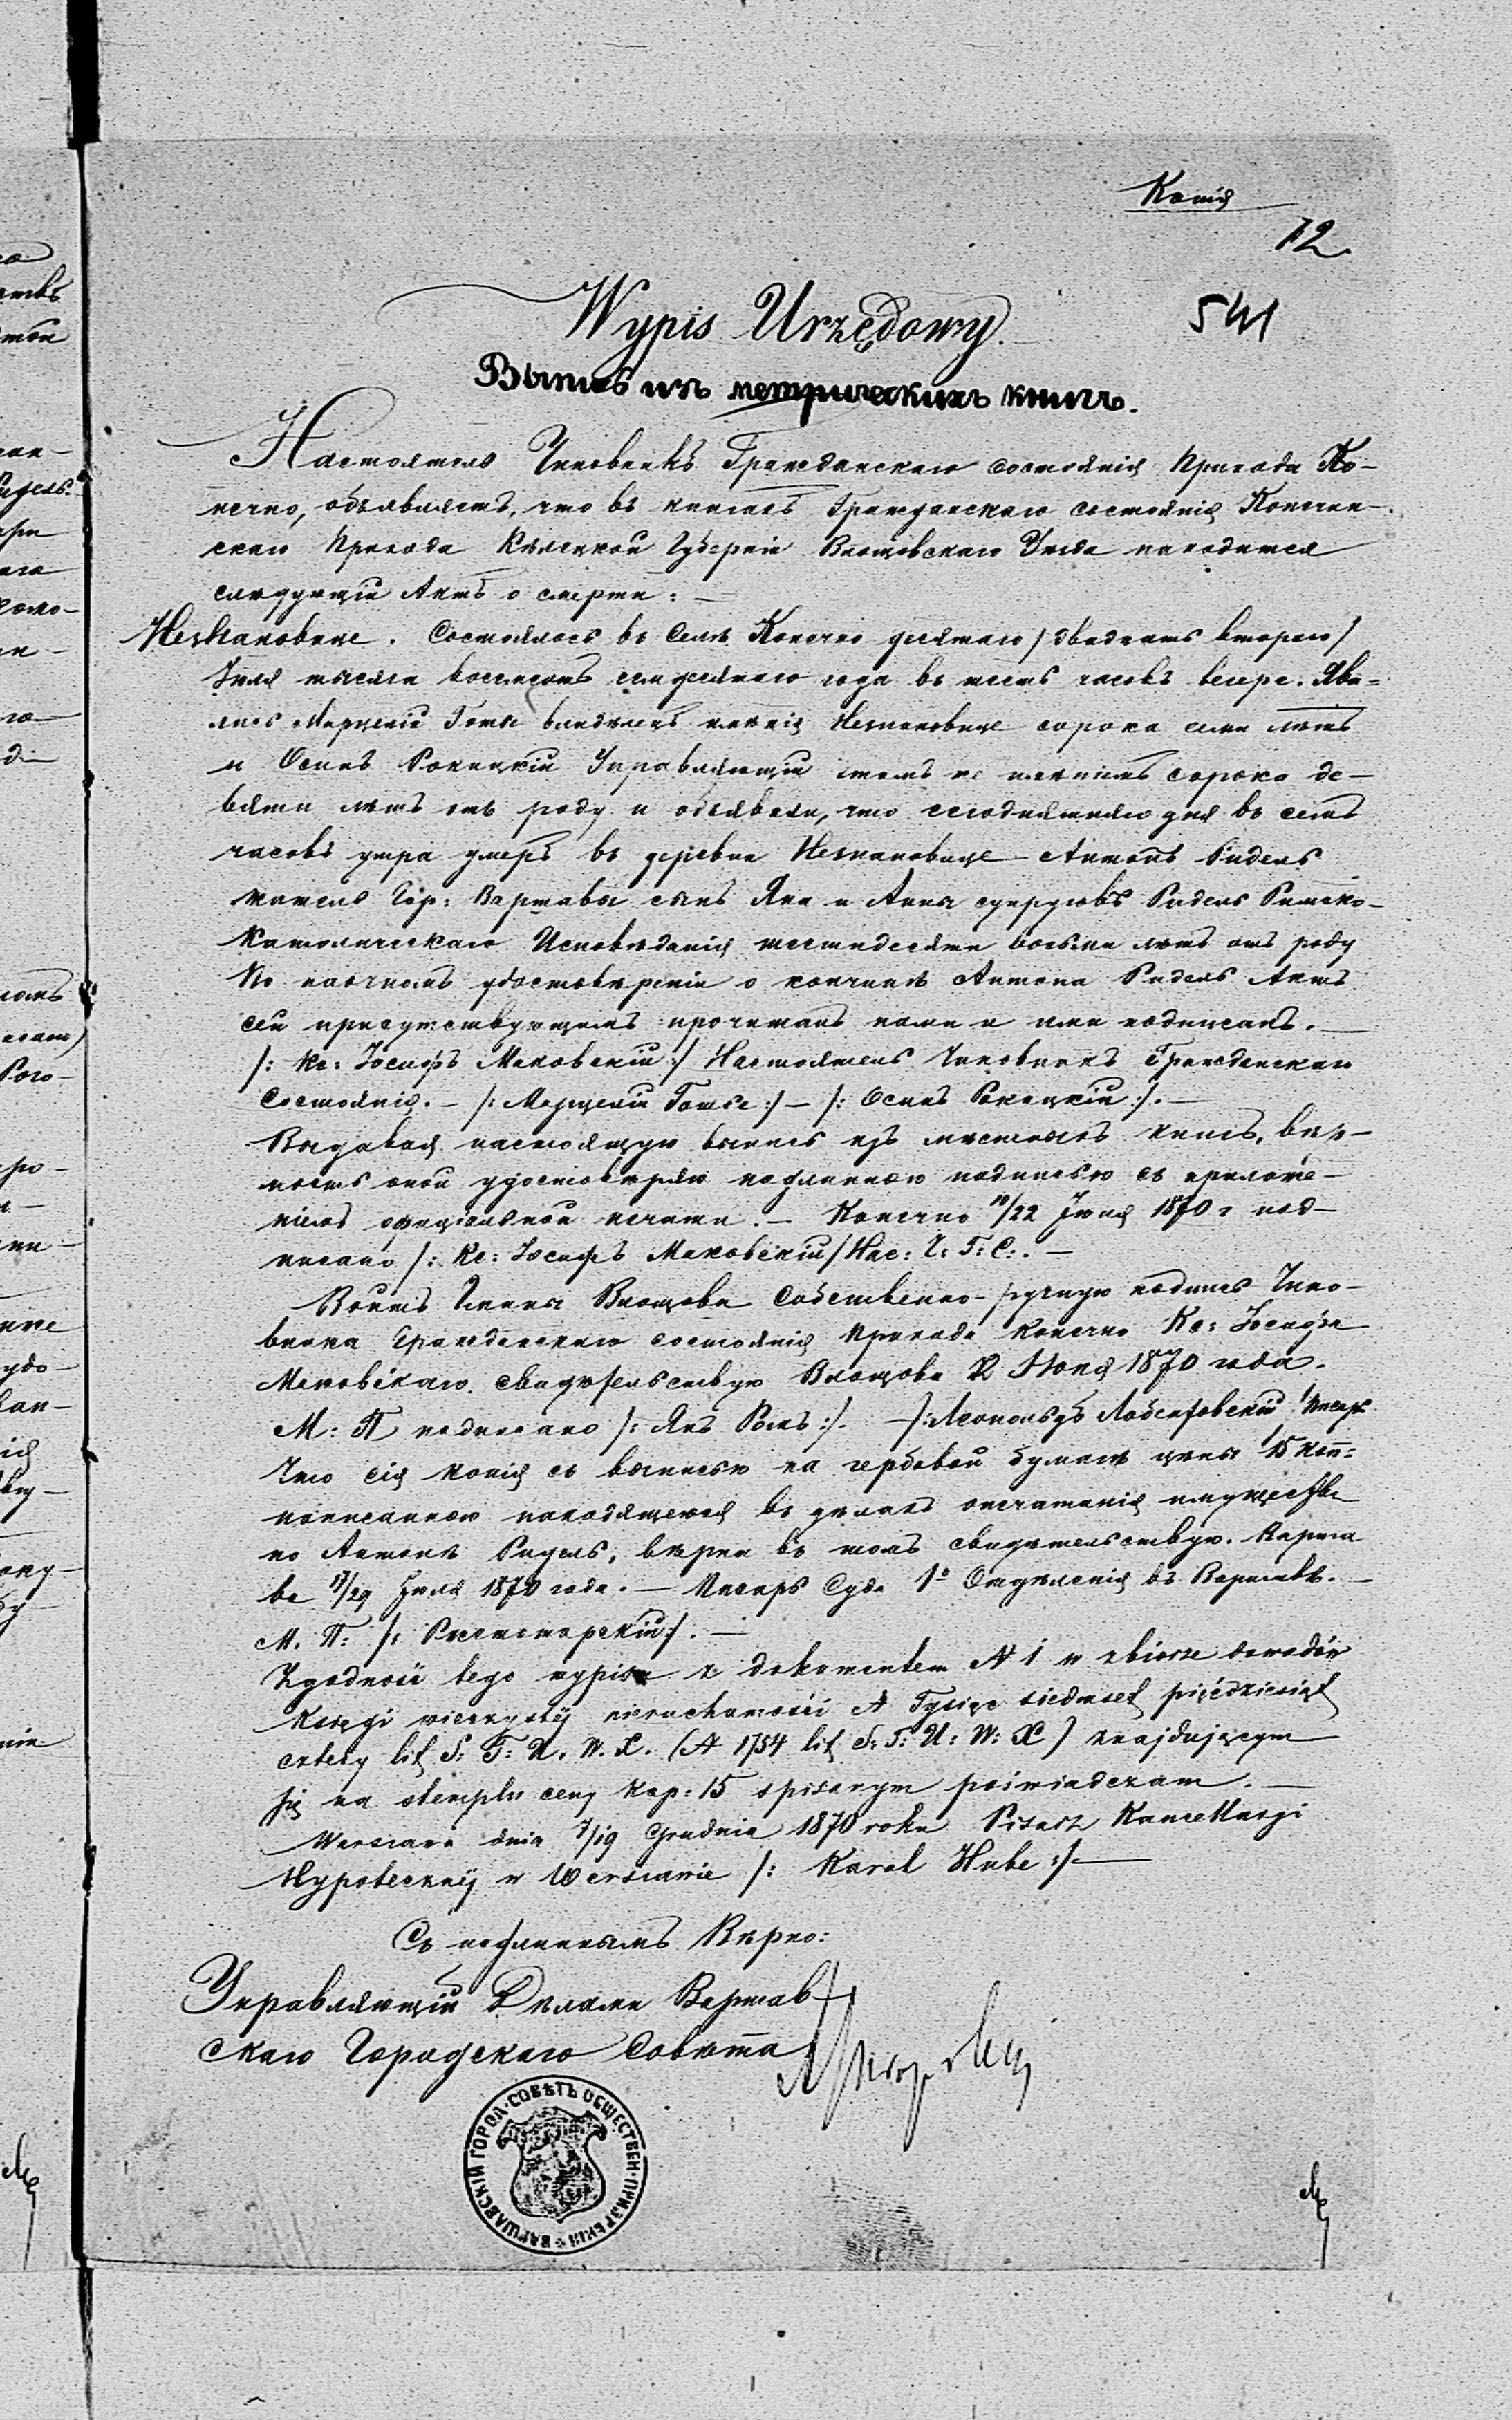 Копія
12
541
Wypis Urzędowy.
Выпись изъ метрическихъ книгъ.
Настоятель Чиновникъ Гражданскаго состоянія Прихода Ко-
нечно, объявляетъ, что въ книгахъ Гражданскаго состоянія Конечн-
скаго Прихода Кѣлецкой Губерніи Влощовскаго Уѣзда находится
слѣдующій Актъ о смерти: —
Незнановице. Состоялось въ Селѣ Конечно десятаго / двадцать втораго /
Іюля тысяча восемсотъ семдесятаго года въ шесть часовъ вечера. Яви-
лись Марцелій владѣлецъ имѣнія Незнановице сорока семи лѣтъ
и Осипъ Рокицкій Управляющій тѣмъ же имѣніемъ сорока де-
вяти лѣтъ отъ роду и объявили, что сегодняшняго дня въ семь
часовъ утра умеръ въ деревни Незнановице Антонъ Ридель
житель Гор: Варшавы сынъ Яна и Анны супруговъ Ридель Римско-
Католическаго Исповѣданія шестидесяти восьми лѣтъ отъ роду
По наочномъ удостовѣреніи о кончинѣ Антона Ридель Актъ
сей присутствующимъ прочитанъ нами и ими подписанъ. —
/: Кс: Іосифъ Маковскій :/ Настоятель Чиновникъ Гражданскаго
Состоянія. — /: Марцелій :/ — /: Осипъ Рокицкій :/. —
Выдавая настоящую выпись изъ мѣстныхъ книгъ, вѣр-
ность оной удостовѣряю подлинною подписью съ приложе-
ніемъ офиціальной печати. — Конечно 10/22 1870 г под-
писано /: Кс: Іосифъ Маковскій / Нас: Ч: Г: С:. —
Войтъ Гмины Влощова Собственно-ручную подпись Чино-
вника Гражданскаго состоянія Прихода Конечно Кс: Іосифа
Маковскаго свидѣтельствую Влощова 1870 года.
М: П подписано /: Янъ :/. — /: Леопольдъ Писарь
Что сія копія съ выписью на гербовой бумагѣ цѣны 15 коп:
написанною находящеюся въ дѣлахъ опечатанія имущества
по Антонѣ Ридель, вѣрна въ томъ свидѣтельствую. Варша
ва 17/29 Іюля 1870 года. — Писарь Суда 1º Отдѣленія въ Варшавѣ. —
М. П: /: :/. —
Zgodność tego wypisu z dokumentem № 1 w zbiorze dowodów
Księgi wieczystéj nieruchomości № Tysiąc siedmset pięćdziesiąt
cztery lit S: T: U. W. X. (№ 1754 lit S: T: U: W: X) znajdującym
się na stemplu ceny kop: 15 spisanym poświadczam. —
Warszawa dnia 7/19 Grudnia 1870 roku Pisarz Kancellarji
Hypotecznéj w Warszawie /: Karol Hube :/ —
Съ подлиннымъ Вѣрно:
Управляющій Дѣлами Варшав-
скаго Городскаго Совѣта
ВАРШАВСКІЙ ГОРОД. СОВѢТЪ ОБЩЕСТВЕН. ПРИЗРѢНІЯ